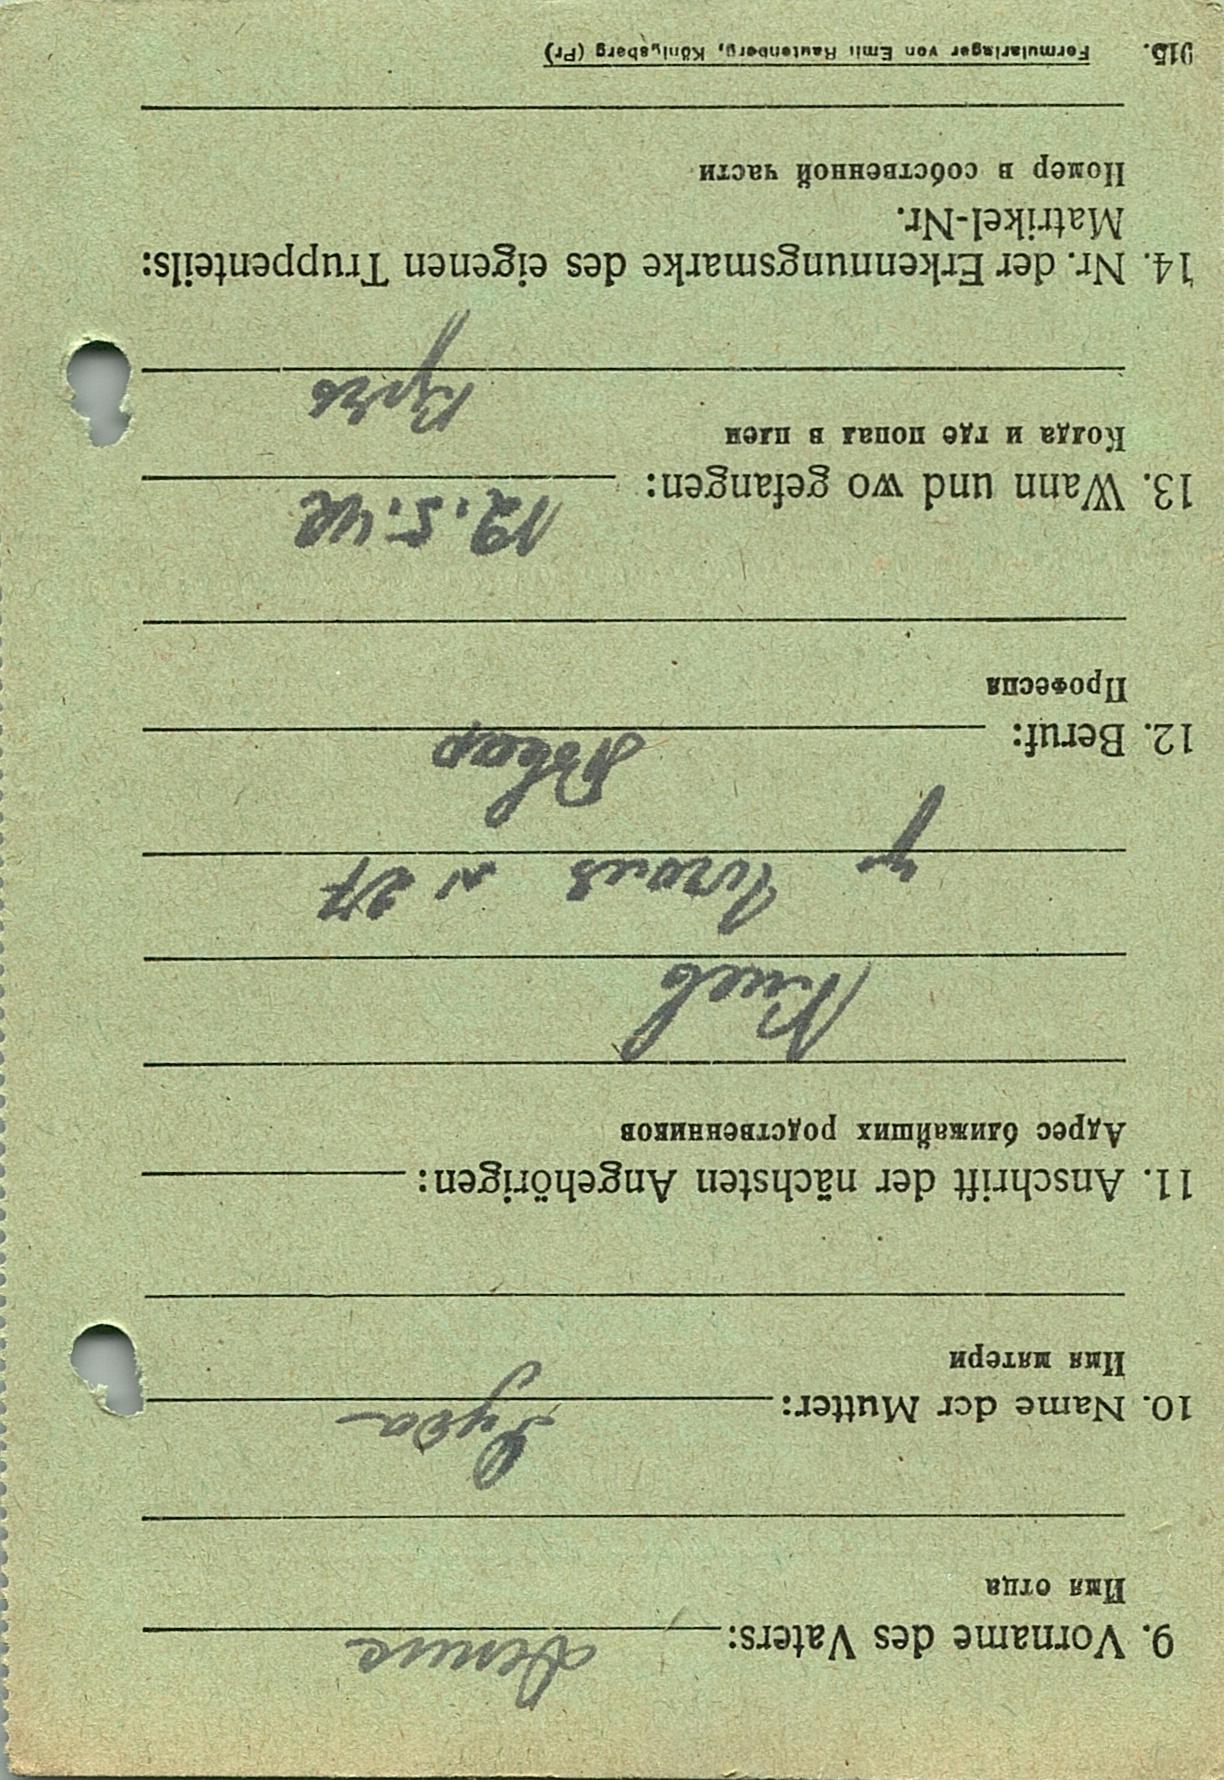 9. Vorname des Vaters:
Имя отца
10. Name der Mutter:
Имя матери
11. Anschrift der nächsten Angehörigen:
Адрес ближайших родственников
Киев
N 27
12. Beruf:
Професия
13. Wann und wo gefangen: 12.5.42
Когда и где попал в плен
14. Nr. der Erkennungsmarke des eigenen Truppenteils:
Matrikel-Nr.
Номер в собственной части
915. Formularlager von Emil Rautenberg, Königsberg (Pr)